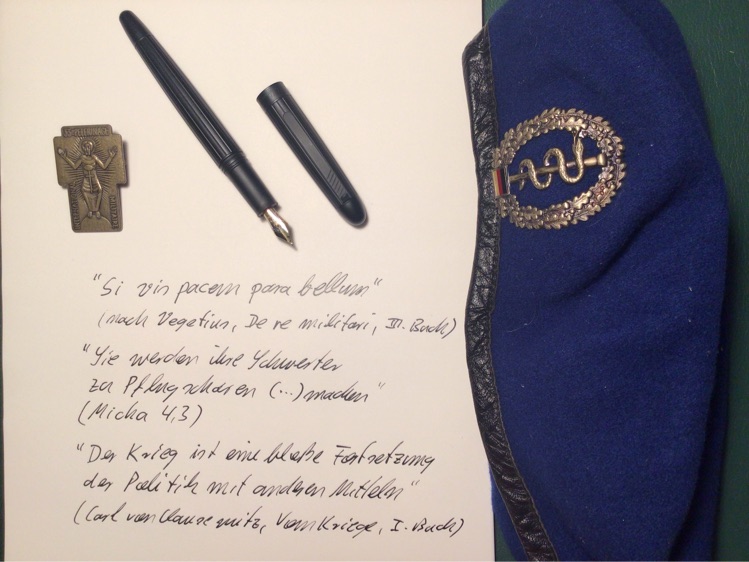 "Si vis pacem para bellum"
(nach Vegetius, De re militari, III. Buch)
"Sie werden ihre Schwerter
zu Pflugscharen (...) machen"
(Micha 4,3)
"Der Krieg ist eine bloße Fortsetzung
der Politik mit anderen Mitteln"
(Carl von Clausewitz, Vom Kriege, I. Buch)